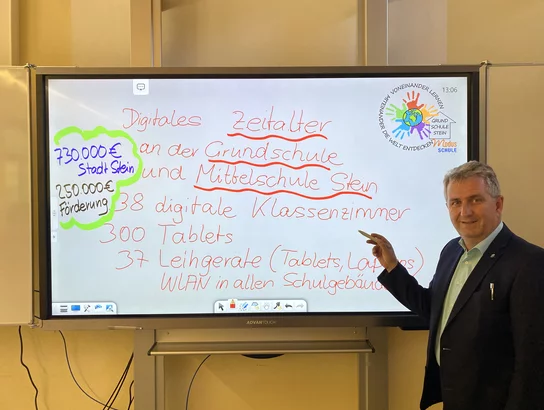 13:06
MITEINANDER DIE WELT ENTDECKEN VONEINANDER LERNEN
GRUND
SCHULE
STEIN
Modus
SCHULE
Digitales Zeitalter
an der Grundschule
und Mittelschule Stein
730.000 €
Stadt Stein
250.000 €
Förderung
38 digitale Klassenzimmer
300 Tablets
37 Leihgeräte (Tablets, Laptops)
WLAN in allen Schulgebäu
ADVANTOUCH